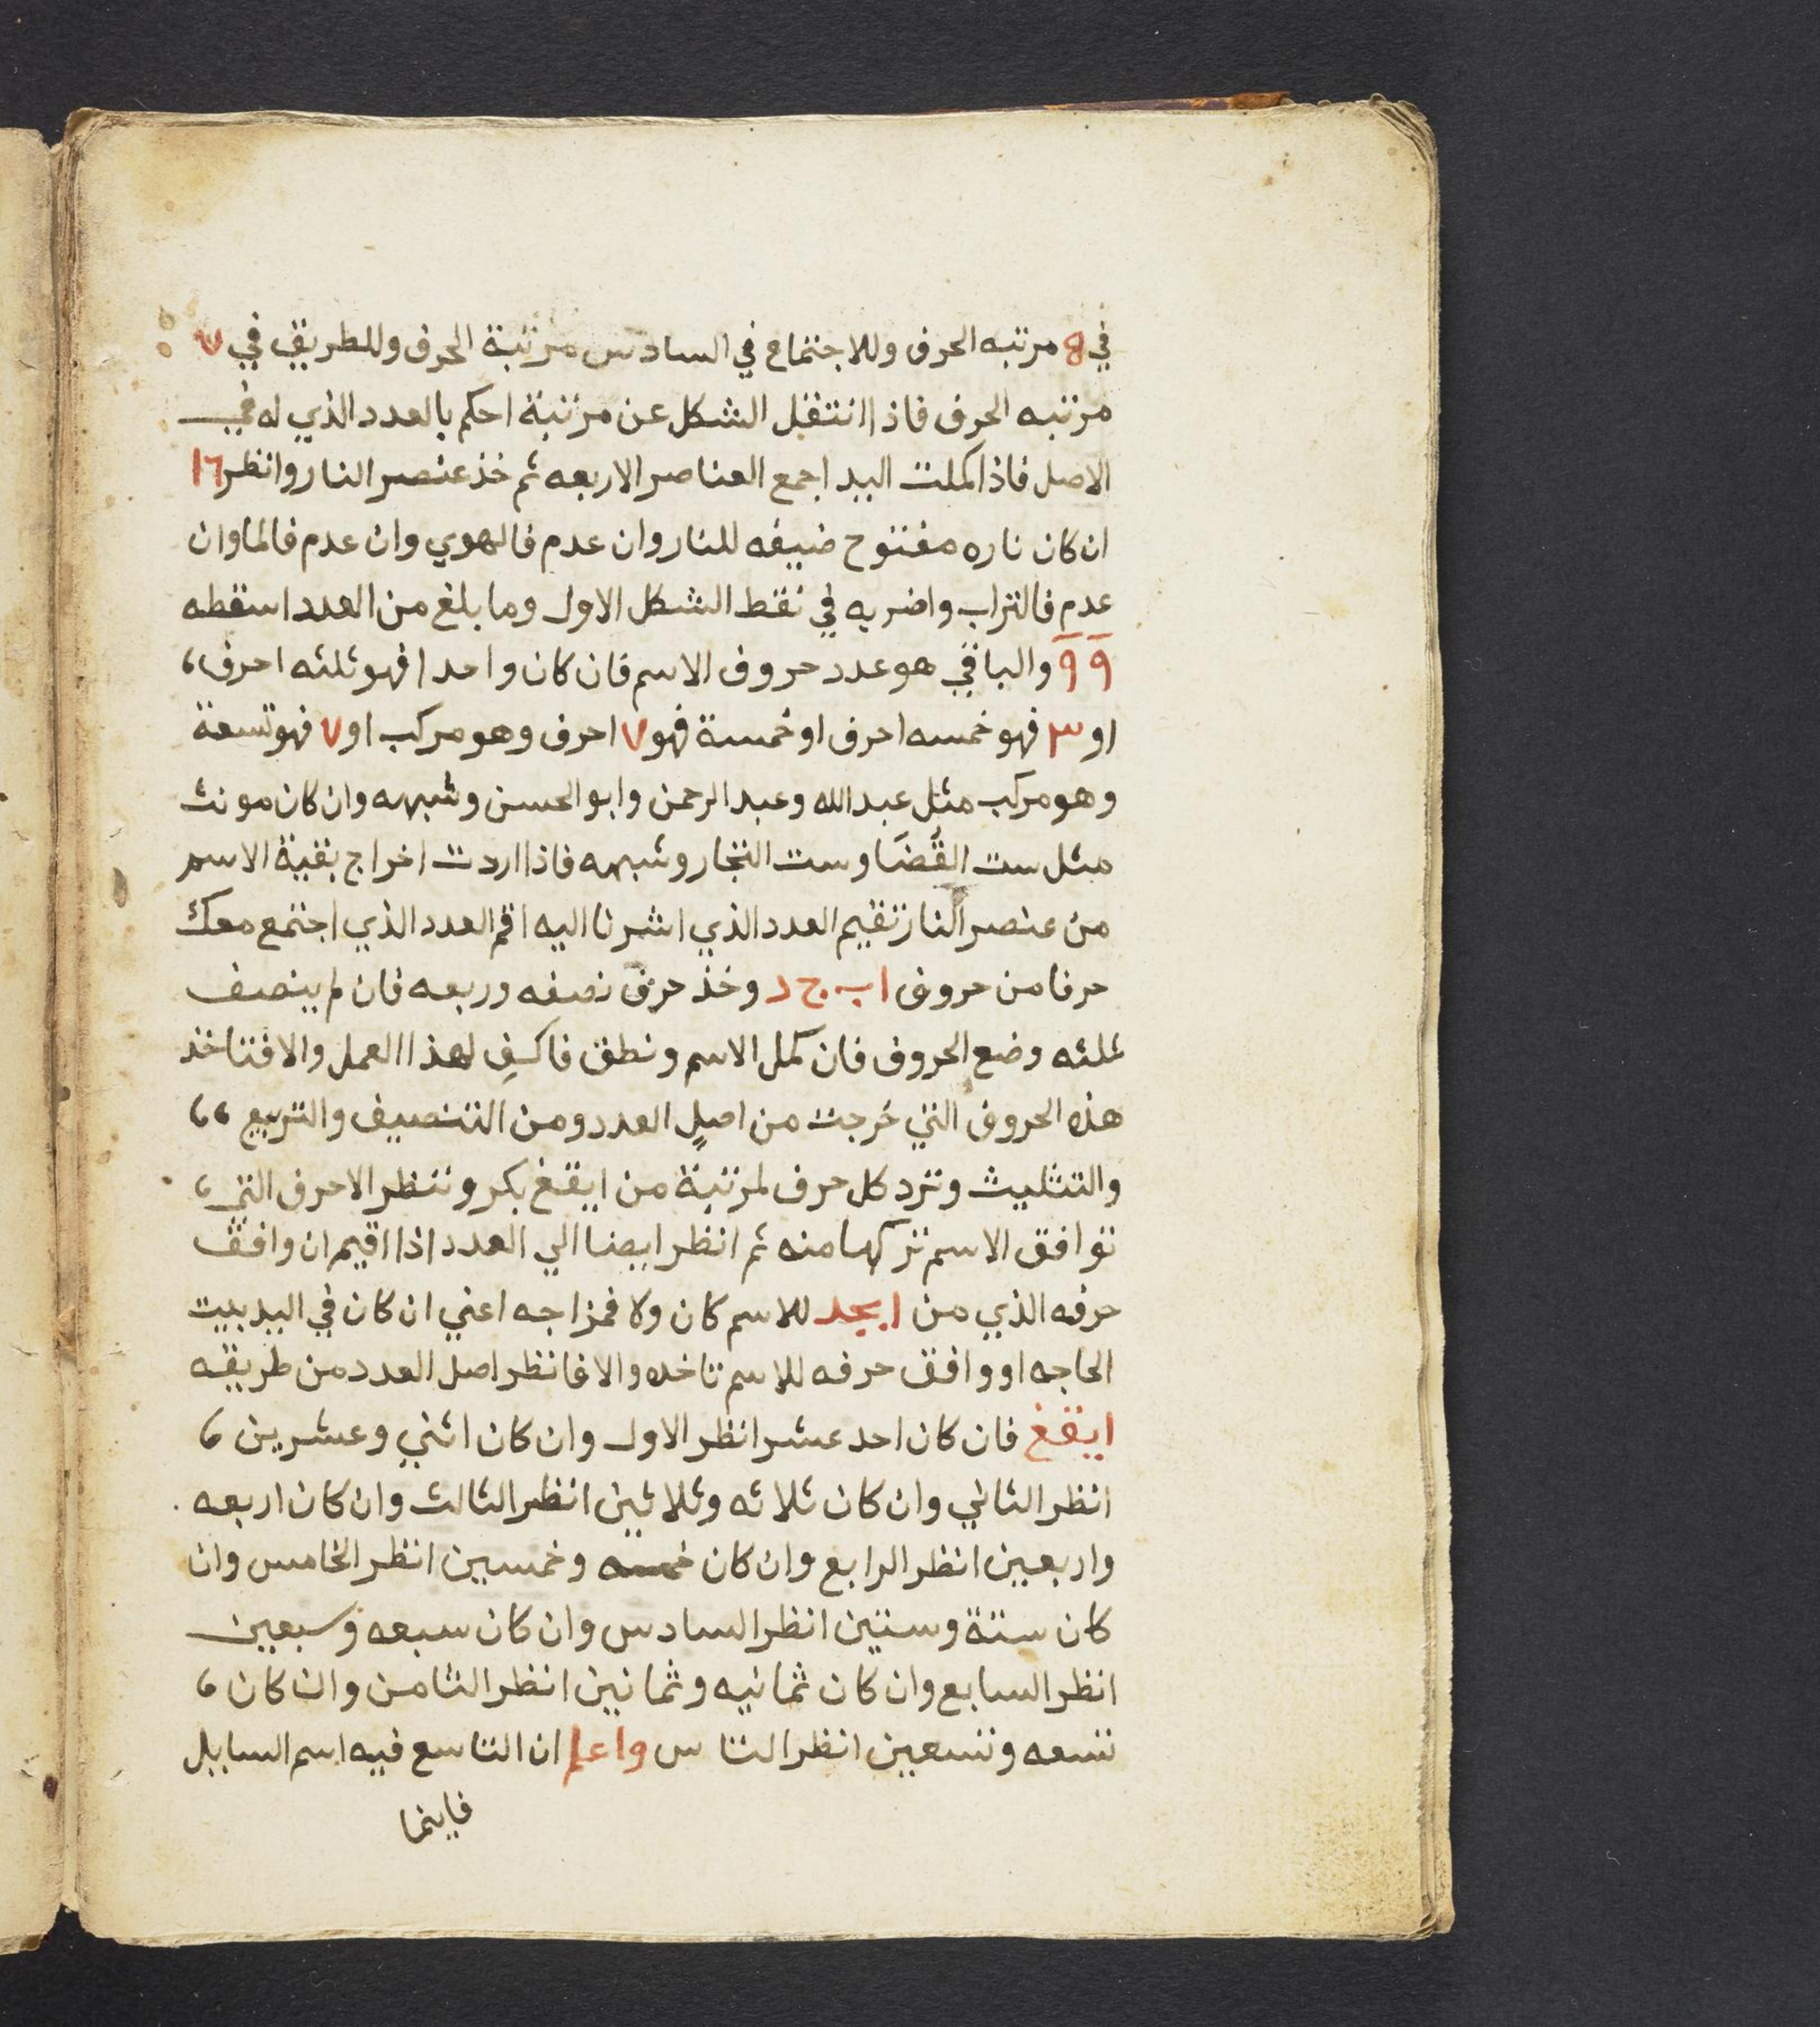 في 8 مرتبه الحرف وللاجتماع في السادس مرتبة الحرف وللطريق في ٧
مرتبه الحرف فاذا انتقل الشكل عن مرتبة احكم بالعدد الذي له في
الاصل فاذا كملت اليد اجمع العناصر الاربعه ثم خذ عنصر النار وانظر ١٦
ان كان ناره مفتوح ضيفه للنار وان عدم فالهوي وان عدم فالماوان
عدم فالتراب واضربه في نقط الشكل الاول وما بلغ من العدد اسقطه
٩ ٩ والباقي هو عدد حروف الاسم فان كان واحدا فهو ثلثه احرف،
او ٣ فهو خمسه احرف او خمسة فهو ٧ احرف وهو مركب او ٧ فهو تسعة
وهو مركب مثل عبد الله وعبد الرحمن وابو الحسن وشبهه وان كان مونث
مثل ست القُضَا وست التجار وشبهه فاذا اردت اخراج بقية الاسم
من عنصر النار تقيم العدد الذي اشرنا اليه اقم العدد الذي اجتمع معك
حرفا من حروف ا ب ج د وخذ حرف نصفه وربعه فان لم ينصف
ثلثه وضع الحروف فان كمل الاسم ونطق فاكفِ لهذا العمل والا فتاخذ
هذه الحروف التي خرجت من اصل العدد ومن التنصيف والتربيع ،،
والتثليث وترد كل حرف لمرتبة من ايقغ بكر وتنظر الاحرف التي،
توافق الاسم تركها منه ثم انظر ايضا الي العدد اذا اقيم ان وافق
حرفه الذي من ابجد للاسم كان ولا فمزاجه اعني ان كان في اليد بيت
الحاجه او وافق حرفه للاسم تاخده والا فانظر اصل العدد من طريقه
ايقغ فان كان احد عشر انظر الاول وان كان اثني وعشرين ،
انظر الثاني وان كان ثلاثه وثلاثين انظر الثالث وان كان اربعه
واربعين انظر الرابع وان كان خمسه وخمسين انظر الخامس وان
كان ستة وستين انظر السادس وان كان سبعه وسبعين
انظر السابع وان كان ثمانيه وثمانين انظر الثامن وان كان ،
تسعه وتسعين انظر واعلم ان التاسع فيه اسم السايل
فاينما